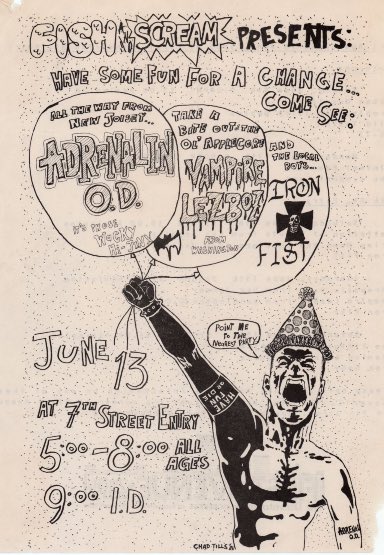 FISH SCREAM PRESENTS:
HAVE SOME FUN FOR A CHANGE...
COME SEE:
ALL THE WAY FROM
NEW JOISEY...
ADRENALIN
O.D.
IT'S THOSE
WACKY
TAKE A
BITE
OL' APPLECORE
VAMPIRE
LEZBOZ
FROM
WASHINGTON
AND
THE LOCAL
BOYS...
IRON
FIST
POINT ME
TO THE
NEAREST PARTY.
HAVE
FUN
OR DIE
JUNE
13
AT 7TH STREET ENTRY
5:00 - 8:00 ALL
AGES
9:00 I.D.
O.D.
CHAD TILLS